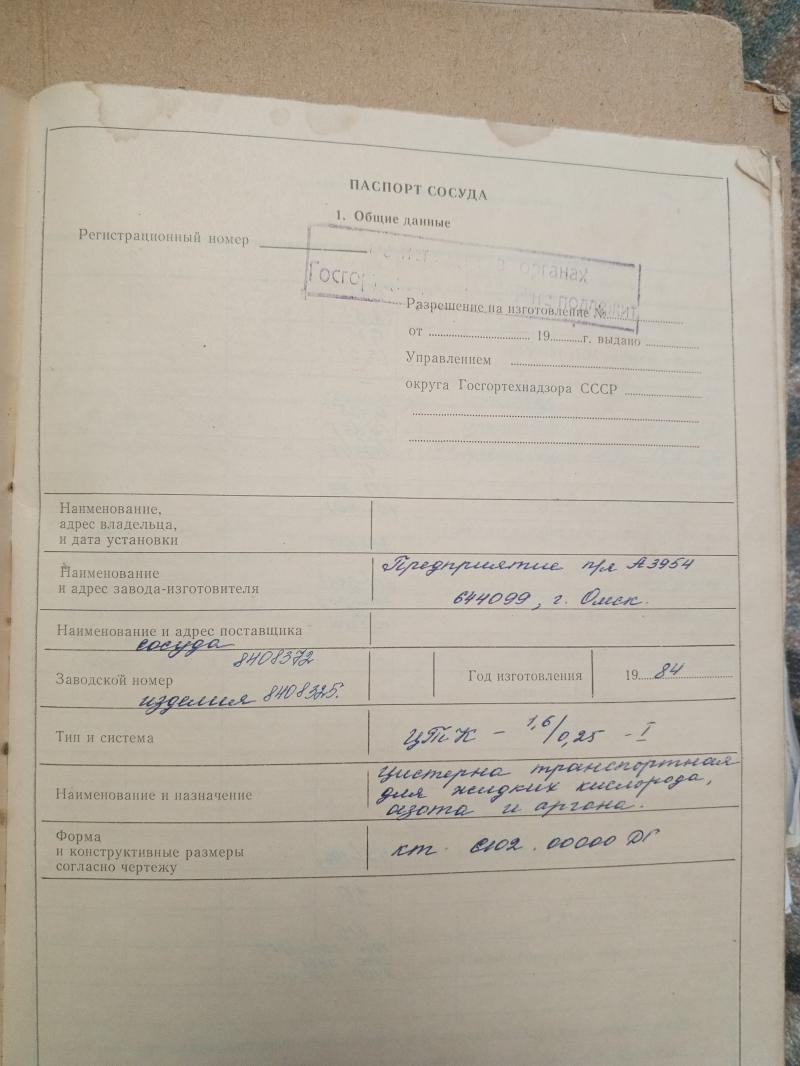 ПАСПОРТ СОСУДА
1. Общие данные
Регистрационный номер
в органах
не подлежит
Разрешение на изготовление №
от 19 г. выдано
Управлением
округа Госгортехнадзора СССР
Наименование,
адрес владельца,
и дата установки
Наименование
и адрес завода-изготовителя
Предприятие п/я А3954
644099, г. Омск.
Наименование и адрес поставщика
сосуда 8408372
Заводской номер
изделия 8408325.
Год изготовления 19 84
Тип и система
ЦТК - 1,6/0,25 - I
Наименование и назначение
Цистерна транспортная
для жидких кислорода,
азота и аргона.
Форма
и конструктивные размеры
согласно чертежу
00000